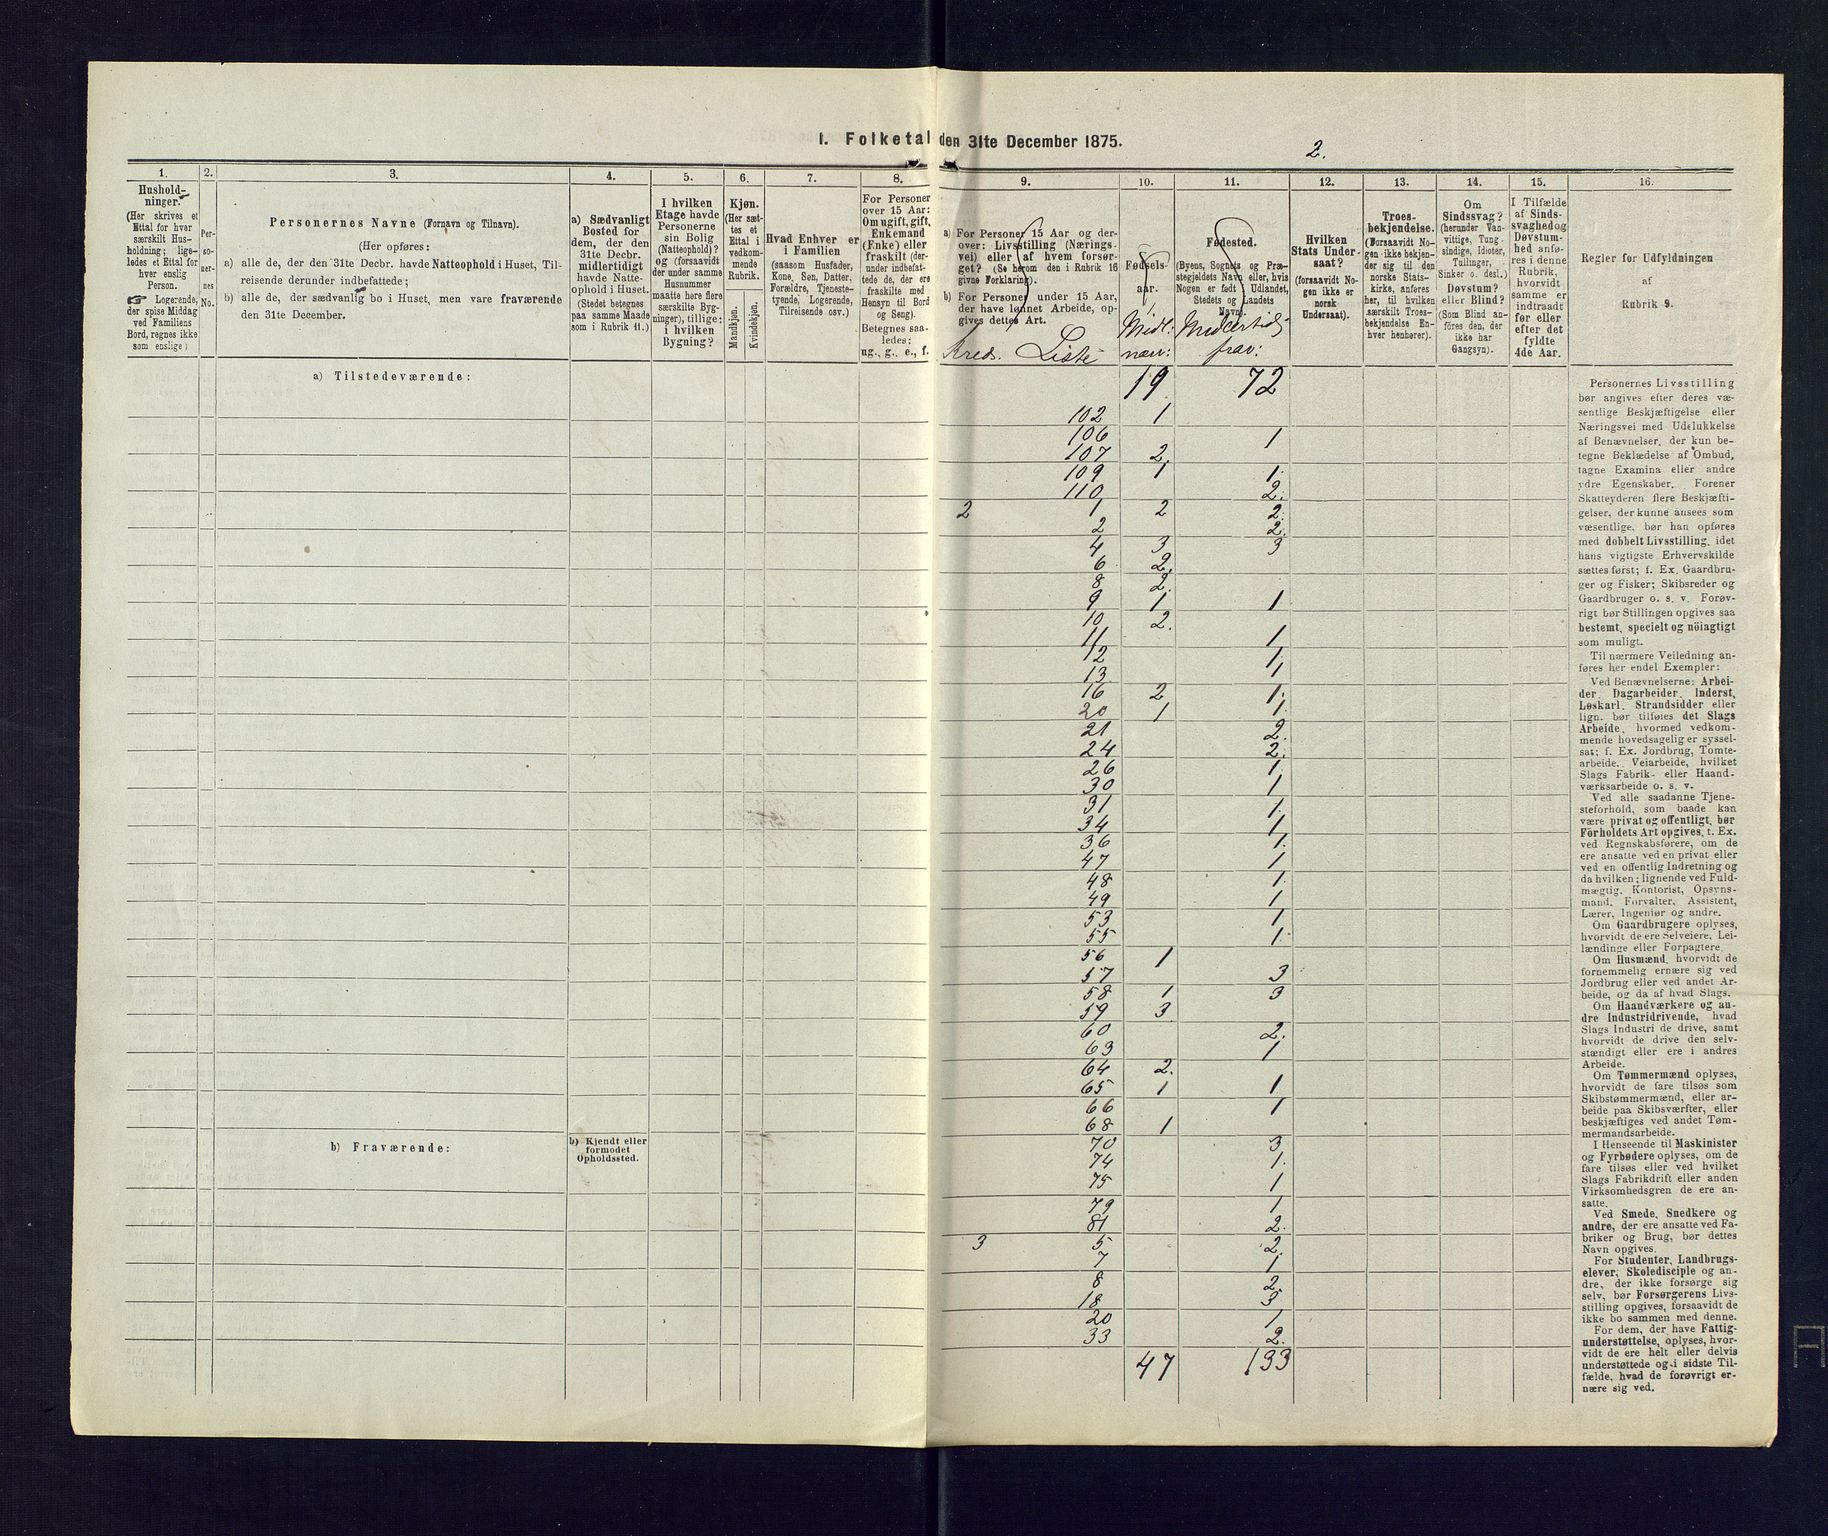 I. Folketal den 31te December 1875.
2.
1.
Hushold-
ninger.
(Her skrives et
Ettal for hver
særskilt Hus-
holdning; lige-
ledes et Ettal for
hver enslig
Person.
☞ Logerende,
der spise Middag
ved Familiens
Bord, regnes ikke
som enslige)
2.
Per-
so-
ner-
nes
No.
3.
Personernes Navne (Fornavn og Tilnavn).
(Her opføres:
a) alle de, der den 31te Decbr. havde Natteophold i Huset, Til-
reisende derunder indbefattede;
b) alle de, der sædvanlig bo i Huset, men vare fraværende
den 31te December.
4.
a) Sædvanligt
Bosted for
dem, der den
31te Decbr.
midlertidigt
havde Natte-
ophold i Huset.
(Stedet betegnes
paa samme Maade
som i Rubrik 11.)
5.
I hvilken
Etage havde
Personerne
sin Bolig
(Natteophold)?
og (forsaavidt
der under samme
Husnummer
maatte høre flere
særskilte Byg-
ninger), tillige:
i hvilken
Bygning?
6.
Kjøn.
(Her sæt-
tes et
Ettal i
vedkom-
mende
Rubrik.
Mandkjøn.
Kvindekjøn.
7.
Hvad Enhver er
i Familien
(saasom Husfader,
Kone, Søn, Datter,
Forældre, Tjeneste-
tyende, Logerende,
Tilreisende osv.)
8.
For Personer
over 15 Aar:
Om ugift, gift,
Enkemand
(Enke) eller
fraskilt (der-
under indbefat-
tede de, der ere
fraskilte med
Hensyn til Bord
og Seng).
Betegnes saa-
ledes:
ug., g., e., f.
9.
a) For Personer 15 Aar og der-
over: Livsstilling (Nærings-
vei) eller af hvem forsør-
get? (Se herom den i Rubrik 16
givne Forklaring).
b) For Personer under 15 Aar,
der have lønnet Arbeide, op-
gives dettes Art.
Kreds. Liste
10.
Fødsels-
aar.
Midl:
næv:
11.
Fødested.
(Byens, Sognets og Præ-
stegjeldets Navn eller, hvis
Nogen er født i Udlandet,
Stedets og Landets
Navn).
Midlertidig
frav:
12.
Hvilken
Stats Under-
saat?
(forsaavidt No-
gen ikke er
norsk
Undersaat).
13.
Troes-
bekjendelse.
(Forsaavidt No-
gen ikke bekjen-
der sig til den
norske Stats-
kirke, anføres
her, til hvilken
særskilt Troes-
bekjendelse En-
hver henhører).
14.
Om
Sindssvag?
(herunder Van-
vittige, Tung-
sindige, Idioter,
Tullinger,
Sinker o. desl.)
Døvstum?
eller Blind?
(Som Blind an-
føres den, der
ikke har
Gangsyn).
15.
I Tilfælde
af Sinds-
svaghed og
Døvstum-
hed anfø-
res i denne
Rubrik,
hvorvidt
samme er
indtraadt
før eller
efter det
fyldte
4de Aar.
16.
Regler for Udfyldningen
af
Rubrik 9.
a) Tilstedeværende:
19 72
102 1
106 1
107 2.
109 1 1.
110 2.
2 1 2 2.
2 2.
4 3 3
6 2.
8 2.
9 1 1
10 2.
11 1
12 1.
13. 1
16 2 1.
20 1 1.
21 2.
24 2.
26 1.
30 1
31 1.
34 1
36 1.
47 1
48 1.
49 1
53 1
55 1.
56 1
57 3
58 1 3
59 3.
60 2.
63 1
64 2.
65 1 1
66 1
68 1
70 3
74 1.
75 1
79 1
81 2.
3 5 2.
7 1
8 2.
18 3
20 1
33 2.
47 133
b) Fraværende:
b) Kjendt eller
formodet
Opholdssted.
Personernes Livsstilling
bør angives efter deres væ-
sentlige Beskjæftigelse eller
Næringsvei med Udelukkelse
af Benævnelser, der kun be-
tegne Beklædelse af Ombud,
tagne Examina eller andre
ydre Egenskaber. Forener
Skatteyderen flere Beskjæfti-
gelser, der kunne ansees som
væsentlige, bør han opføres
med dobbelt Livsstilling, idet
hans vigtigste Erhvervskilde
sættes først; f. Ex. Gaardbru-
ger og Fisker; Skibsreder og
Gaardbruger o. s. v. Forøv-
rigt bør Stillingen opgives saa
bestemt, specielt og nöiagtigt
som muligt.
Til nærmere Veiledning an-
føres her endel Exempler:
Ved Benævnelserne: Arbei-
der, Dagarbeider, Inderst,
Løskarl, Strandsidder eller
lign. bør tilføies det Slags
Arbeide, hvormed vedkom-
mende hovedsagelig er syssel-
sat; f. Ex. Jordbrug, Tomte-
arbeide, Veiarbeide, hvilket
Slags Fabrik- eller Haand-
værksarbeide o. s. v.
Ved alle saadanne Tjene-
steforhold, som baade kan
være privat og offentligt, bør
Forholdets Art opgives, t. Ex.
ved Regnskabsførere, om de
ere ansatte ved en privat eller
ved en offentlig Indretning og
da hvilken; lignende ved Fuld-
mægtig, Kontorist, Opsyns-
mand, Forvalter, Assistent,
Lærer, Ingeniør og andre.
Om Gaardbrugere oplyses,
hvorvidt de ere Selveiere, Lei-
lændinge eller Forpagtere.
Om Husmænd, hvorvidt de
fornemmelig ernære sig ved
Jordbrug eller ved andet Ar-
beide, og da af hvad Slags.
Om Haandværkere og an-
dre Industridrivende, hvad
Slags Industri de drive, samt
hvorvidt de drive den selv-
stændigt eller ere i andres
Arbeide.
Om Tømmermænd oplyses,
hvorvidt de fare tilsøs som
Skibstømmermænd, eller ar-
beide paa Skibsværfter, eller
beskjæftiges ved andet Tøm-
mermandsarbeide.
I Henseende til Maskinister
og Fyrbødere oplyses, om de
fare tilsøs eller ved hvilket
Slags Fabrikdrift eller anden
Virksomhedsgren de ere an-
satte.
Ved Smede, Snedkere og
andre, der ere ansatte ved Fa-
briker og Brug, bør dettes
Navn opgives.
For Studenter, Landbrugs-
elever, Skoledisciple og an-
dre, der ikke forsørge sig
selv, bør Forsørgerens Livs-
stilling opgives, forsaavidt de
ikke bo sammen med denne.
For dem, der have Fattig-
understøttelse, oplyses, hvor-
vidt de ere helt eller delvis
understøttede og i sidste Til-
fælde, hvad de forøvrigt er-
nære sig ved.